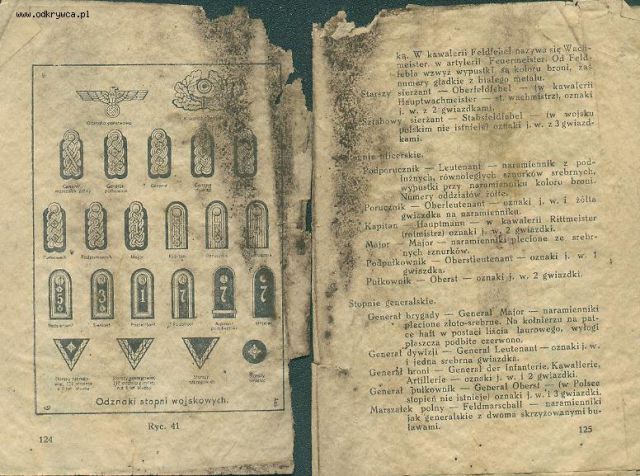 www.odkrywca.pl
Odznaki stopni wojskowych.
124
Ryc. 41
ką. W kawalerii Feldfebel nazywa się Wach-
meister, w artylerii Feuermeister. Od Feld-
febla wzwyż wypustki są koloru broni, zaś
numery gładkie z białego metalu.
Starszy sierżant — Oberfeldfebel — (w kawalerii
Hauptwachmeister — st. wachmistrz), oznaki
j. w. z 2 gwiazdkami.
Sztabowy sierżant — Stabsfeldfebel — (w wojsku
polskim nie istnieje) oznaki j. w. z 3 gwiazd-
kami.
oficerskie.
Podporucznik — Leutenant — naramiennik z pod-
łużnych, równoległych sznurków srebrnych,
wypustki przy naramienniku koloru broni.
Numery oddziałów żółte.
Porucznik — Oberleutenant — oznaki j. w. i żółta
gwiazdka na naramienniku.
Kapitan — Hauptmann — w kawalerii Rittmeister
(rotmistrz) oznaki j. w. 2 gwiazdki.
Major — Major — naramienniki plecione ze srebr-
nych sznurków.
Podpułkownik — Oberstleutenant — oznaki j. w. 1
gwiazdka.
Pułkownik — Oberst — oznaki j. w. 2 gwiazdki.
Stopnie generalskie.
Generał brygady — General Major — naramienniki
plecione złoto-srebrne. Na kołnierzu na pat-
ce haft w postaci liścia laurowego, wyłogi
płaszcza podbite czerwono.
Generał dywizji — General Leutenant — oznaki j. w.
i jedna srebrna gwiazdka.
Generał broni — General der Infanterie, Kawallerie,
Artillerie — oznaki j. w. i 2 gwiazdki.
Generał pułkownik — General Oberst — (w Polsce
stopień nie istnieje) oznaki j. w. i 3 gwiazdki.
Marszałek polny — Feldmarschall — naramienniki
jak generalskie z dwoma skrzyżowanymi bu-
ławami.
125